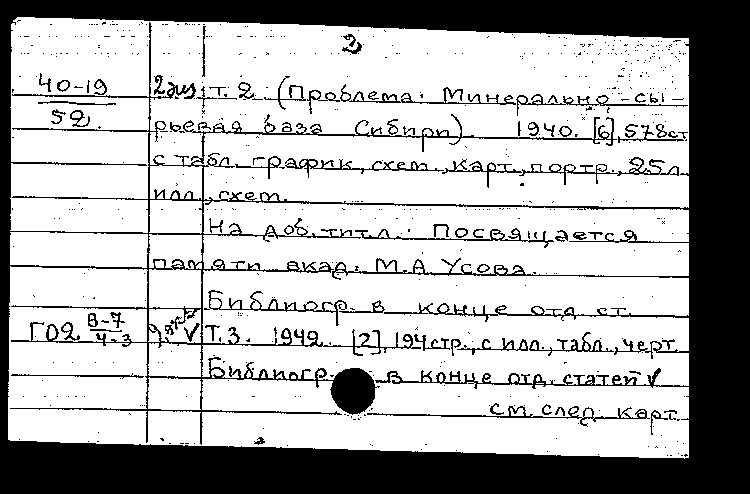 2
40-19 2 экз. т. 2 (Проблема: Минерально-сы-
52. рьевая база Сибири). 1940. [6], 578 ст.
с табл. график., схем., карт., портр., 25 л.
илл., схем.
На доб. титл.: Посвящается
памяти акад. М.А. Усова.
Библиогр. в конце отд. ст.
ГО2 В-7/4-3 V Т. 3. 1942. [2], 194 стр., с илл., табл., черт.
Библиогр. в конце отд. статей V
см. след. карт.